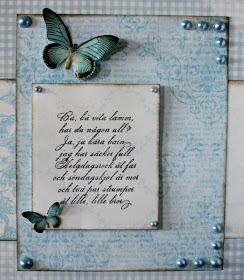 Bä, bä vita lamm,
har du någon ull?
Ja, ja kära barn
jag har säcken full.
Helgdagsrock åt far
och söndagskjol åt mor
och två par strumpor
åt lille, lille bror